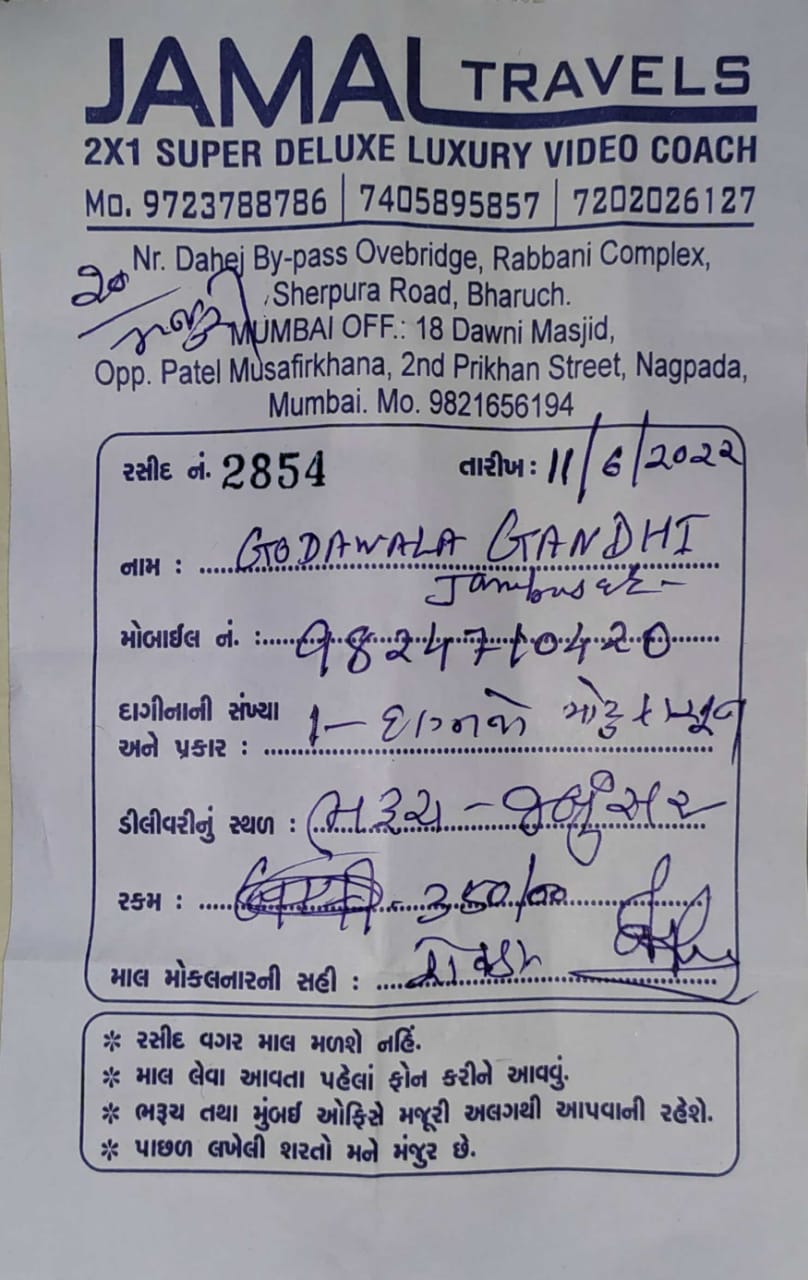 JAMAL TRAVELS
2X1 SUPER DELUXE LUXURY VIDEO COACH
Mo. 9723788786 | 7405895857 | 7202026127
Nr. Dahej By-pass Ovebridge, Rabbani Complex,
Sherpura Road, Bharuch.
MUMBAI OFF.: 18 Dawni Masjid,
Opp. Patel Musafirkhana, 2nd Prikhan Street, Nagpada,
Mumbai. Mo. 9821656194
૨૦
મજુરી
રસીદ નં. 2854 તારીખ: 11/6/2022
નામ : GODAWALA GANDHI
Jambusar
મોબાઈલ નં. : 9824710420
દાગીનાની સંખ્યા
અને પ્રકાર : 1 - દાગનજો મોટુ
ડીલીવરીનું સ્થળ : ભરૂચ - જંબુસર
રકમ : ૩૫૦/00
માલ મોકલનારની સહી :
* રસીદ વગર માલ મળશે નહિં.
* માલ લેવા આવતા પહેલાં ફોન કરીને આવવું.
* ભરૂચ તથા મુંબઈ ઓફિસે મજૂરી અલગથી આપવાની રહેશે.
* પાછળ લખેલી શરતો મને મંજુર છે.